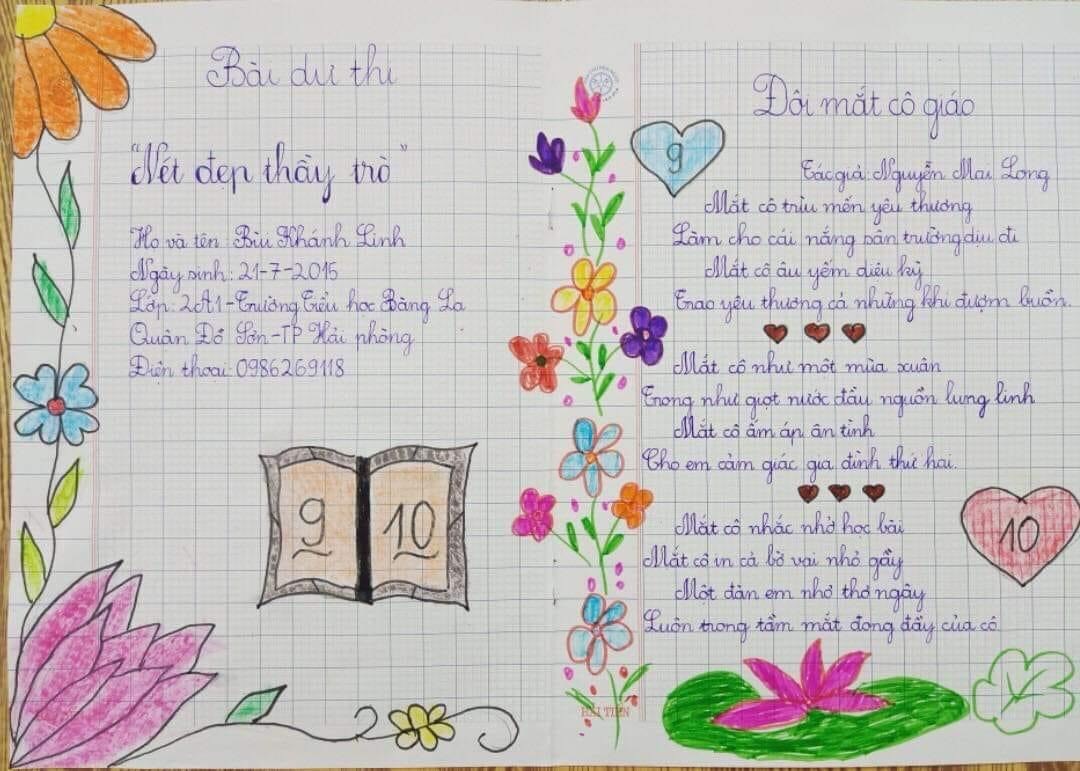 Bài dự thi
"Nét đẹp thầy trò"
Họ và tên: Bùi Khánh Linh
Ngày sinh: 21-7-2015
Lớp: 2A1-Trường Tiểu học Bàng La
Quận Đồ Sơn-TP Hải phòng
Điện thoại: 0986269118
9 10
Đôi mắt cô giáo
9
Tác giả: Nguyễn Mai Long
Mắt cô trìu mến yêu thương
Làm cho cái nắng sân trường dịu đi
Mắt cô âu yếm diệu kỳ
Trao yêu thương cả những khi đượm buồn.
Mắt cô như một mùa xuân
Trong như giọt nước đầu nguồn lung linh
Mắt cô ấm áp ân tình
Cho em cảm giác gia đình thứ hai.
Mắt cô nhắc nhở học bài
Mắt cô in cả bờ vai nhỏ gầy
Một đàn em nhỏ thơ ngây
Luôn trong tầm mắt đong đầy của cô
10
HẢI TIẾN